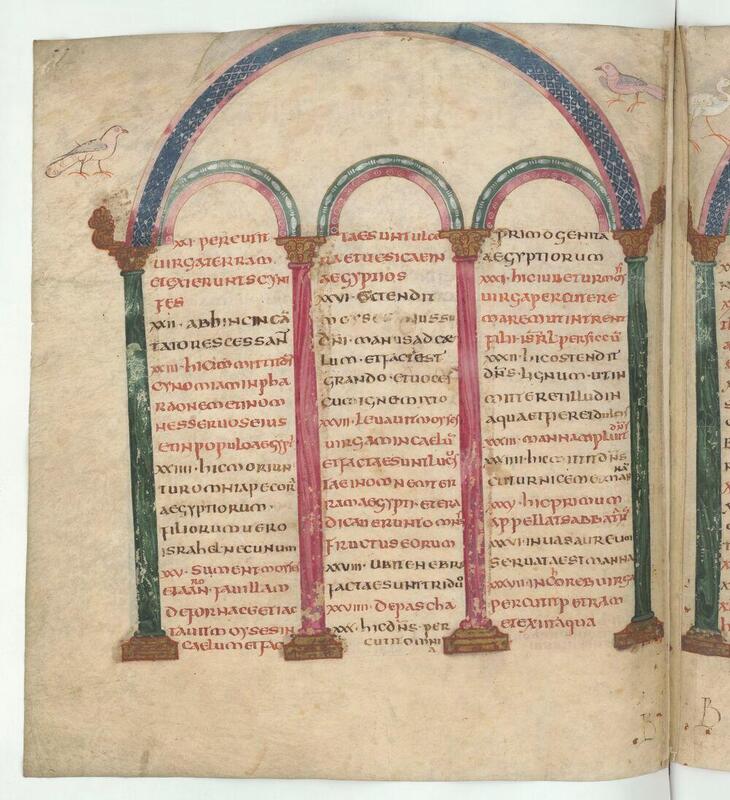 xxi · percutit
virga terram
et exierunt scyni
fes
xxii · abhinc inca
tatores cessan
xxiii · hic dns mittit
cynomiam in pha
raonem et in om
nes servos eius
et in populo aegyp
xxiiii · hic moriun
tur omnia pecora
aegyptiorum ·
filiorum vero
israhel nec unum
xxv · sument moyse
et aaron favillam
de fornace et iac
tavit moyses in
caelum et fac
ta esunt ulce
ra et vesicae in
aegyptios
xxvi · extendit
moyses iussu
dni · manus ad cae
lum · et fact est
grando · et voces
cum igne mixto
xxvii · levavit moyses
virgam in caelu
et factae sunt
tenebrae
ram aegypti · et era
dicaverunt omnes
fructus eorum
xxviii · ubi tenebrae
factae sunt triduo
xxviiii · de pascha
xxx · hic dns per
cutit omnia
primogenita
aegyptiorum
xxxi · hic iubetur moys
virga percutere
mare ut intrent
filii isrl perfic
xxxii · hic ostendit
dns · lignum · ut in
mitteret illud in
aqua et fieret dulcis
xxxiii · manna
xxxiiii · hic mittit dns
coturnicem et man
na
xxxv · hic primum
appellat sabbatum
xxxvi · in vas aureum
servata est manna
xxxvii · in choreb virga
percutit petram
et exiit aqua
B
B